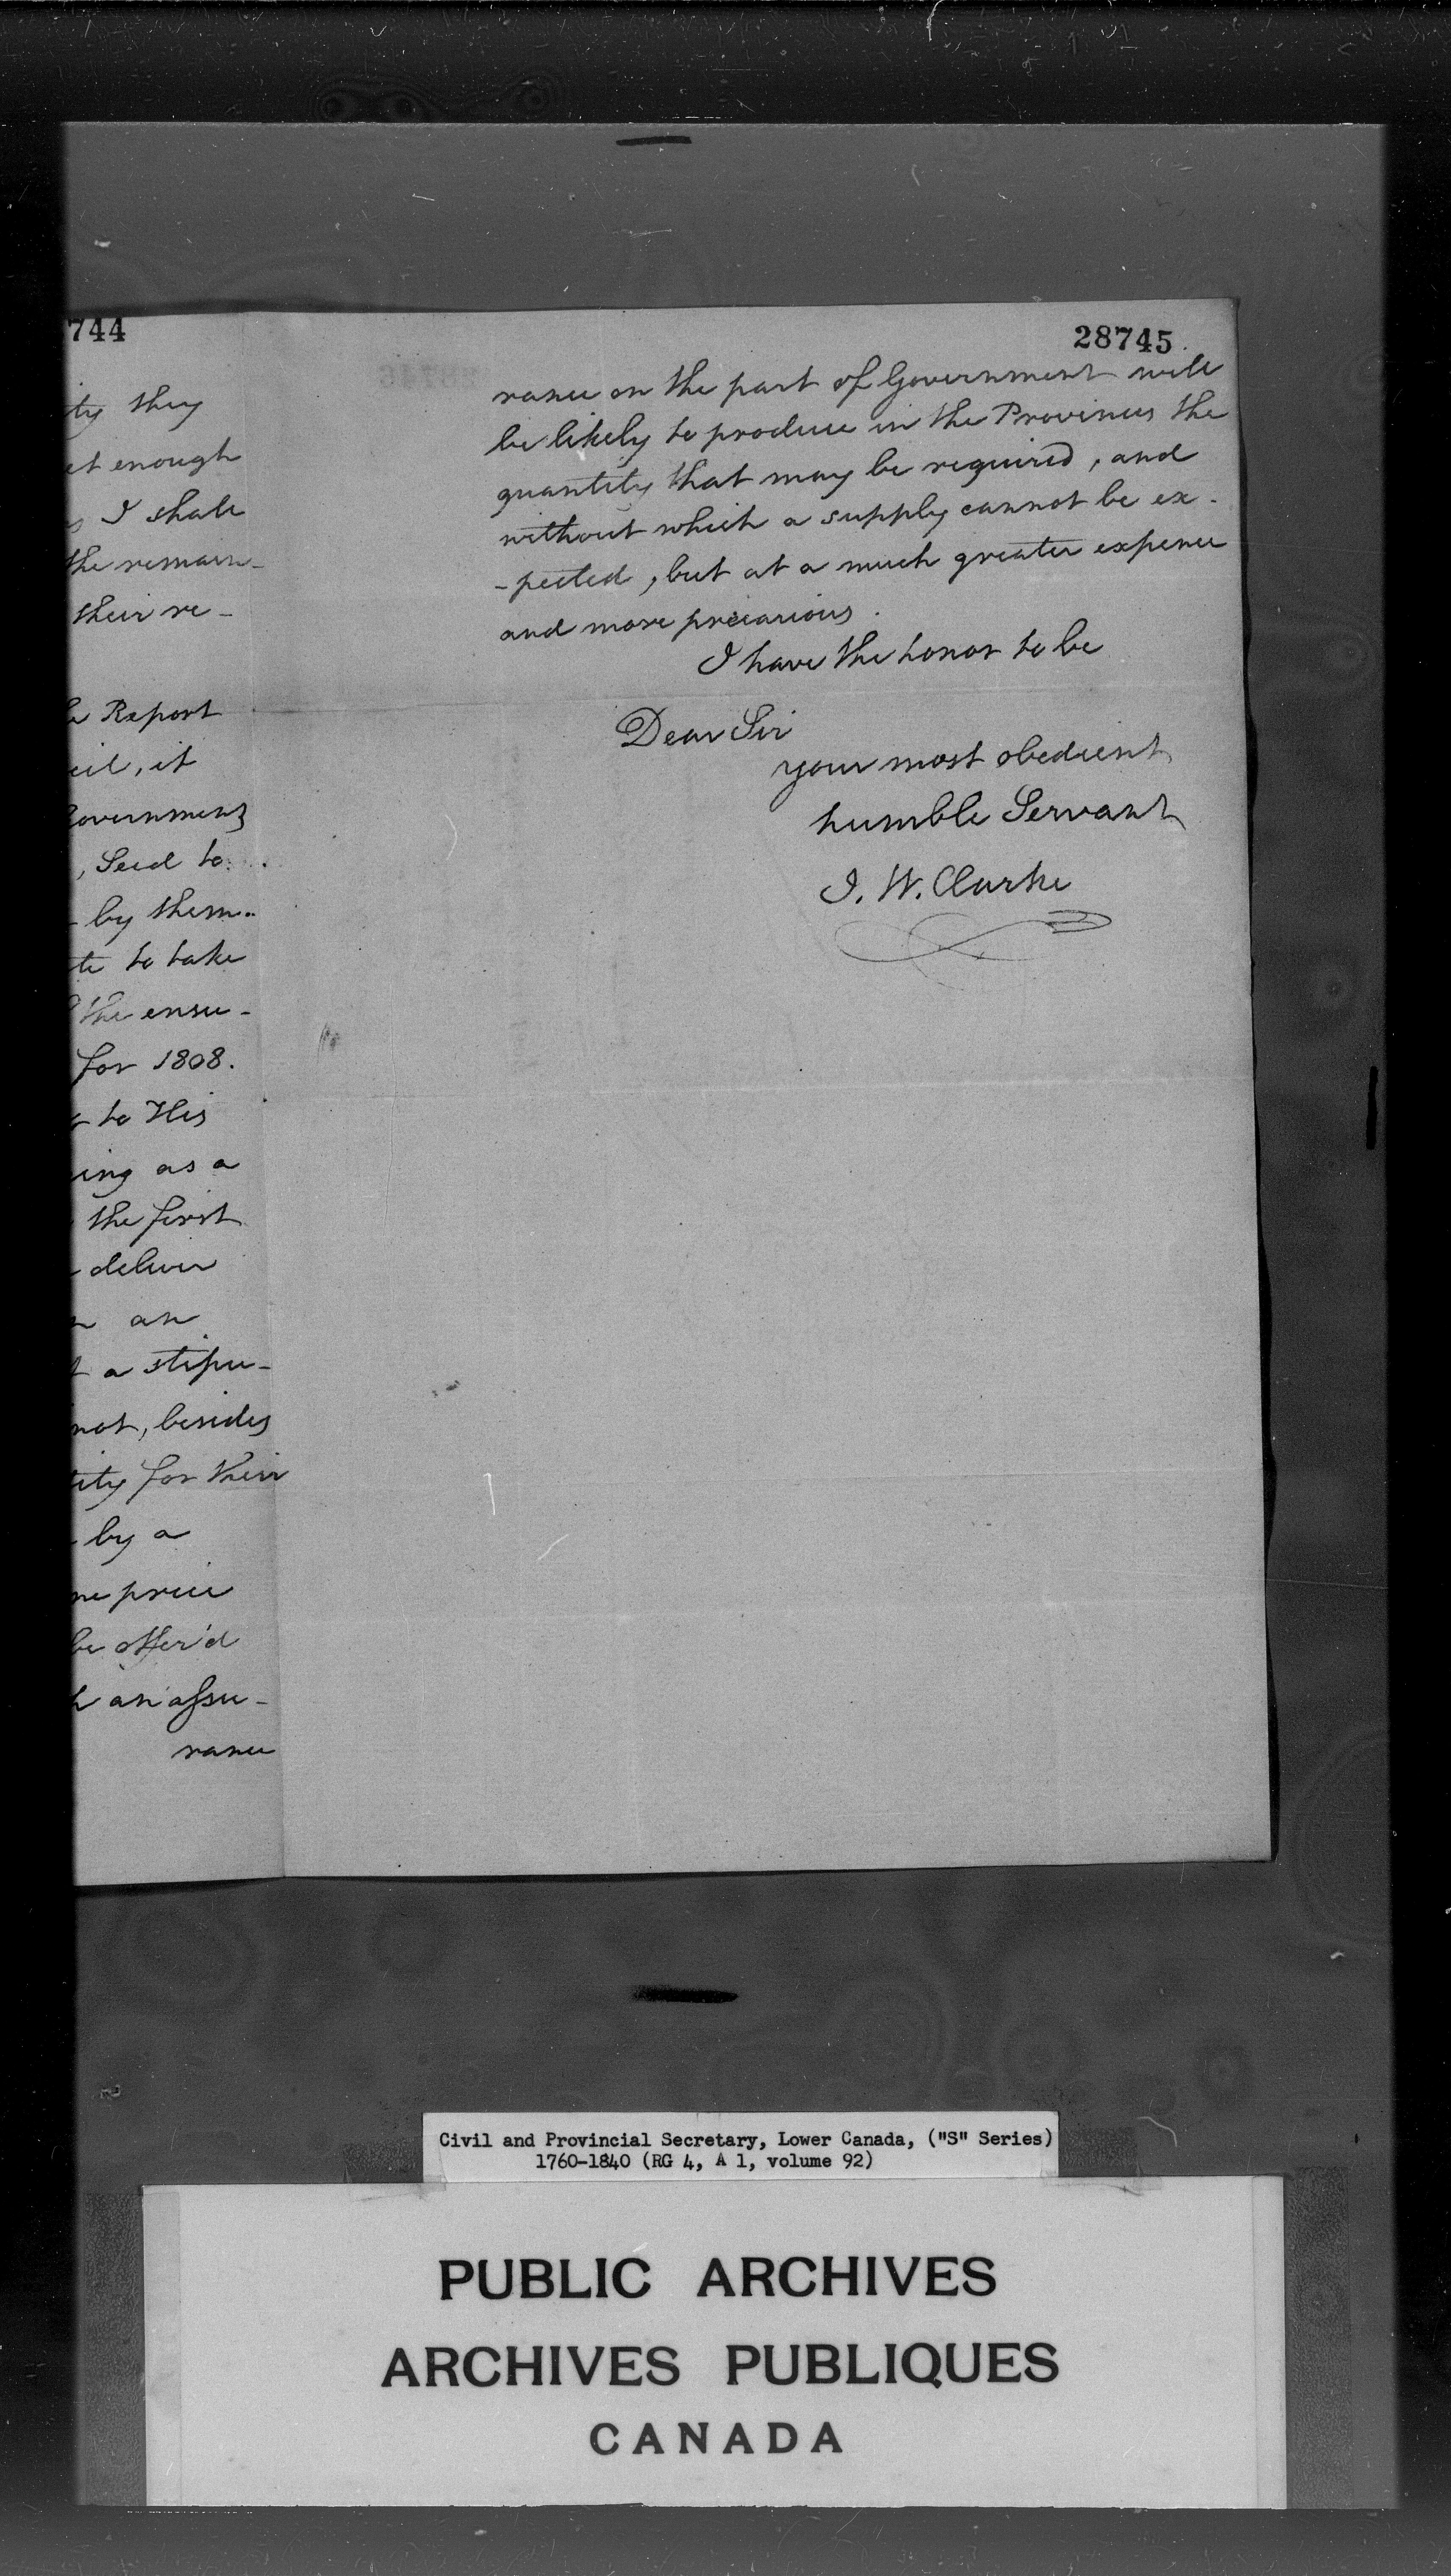 744
ity they
et enough
I shall
the remain-
their re-
Report
cil, it
Government
, Seed to
by them.
te to take
the ensu-
for 1808.
to His
ing as a
the first
deliver
an
a stipu-
not, besides
tity for their
by a
me price
be offer'd
an assu-
rance
28745
rance on the part of Government will
be likely to produce in the Provinces the
quantity that may be required, and
without which a supply cannot be ex-
-pected, but at a much greater expence
and more precarious.
I have the honor to be
Dear Sir
your most obedient
humble Servant
I. W. Clarke
Civil and Provincial Secretary, Lower Canada, ("S" Series)
1760-1840 (RG 4, A 1, volume 92)
PUBLIC ARCHIVES
ARCHIVES PUBLIQUES
CANADA